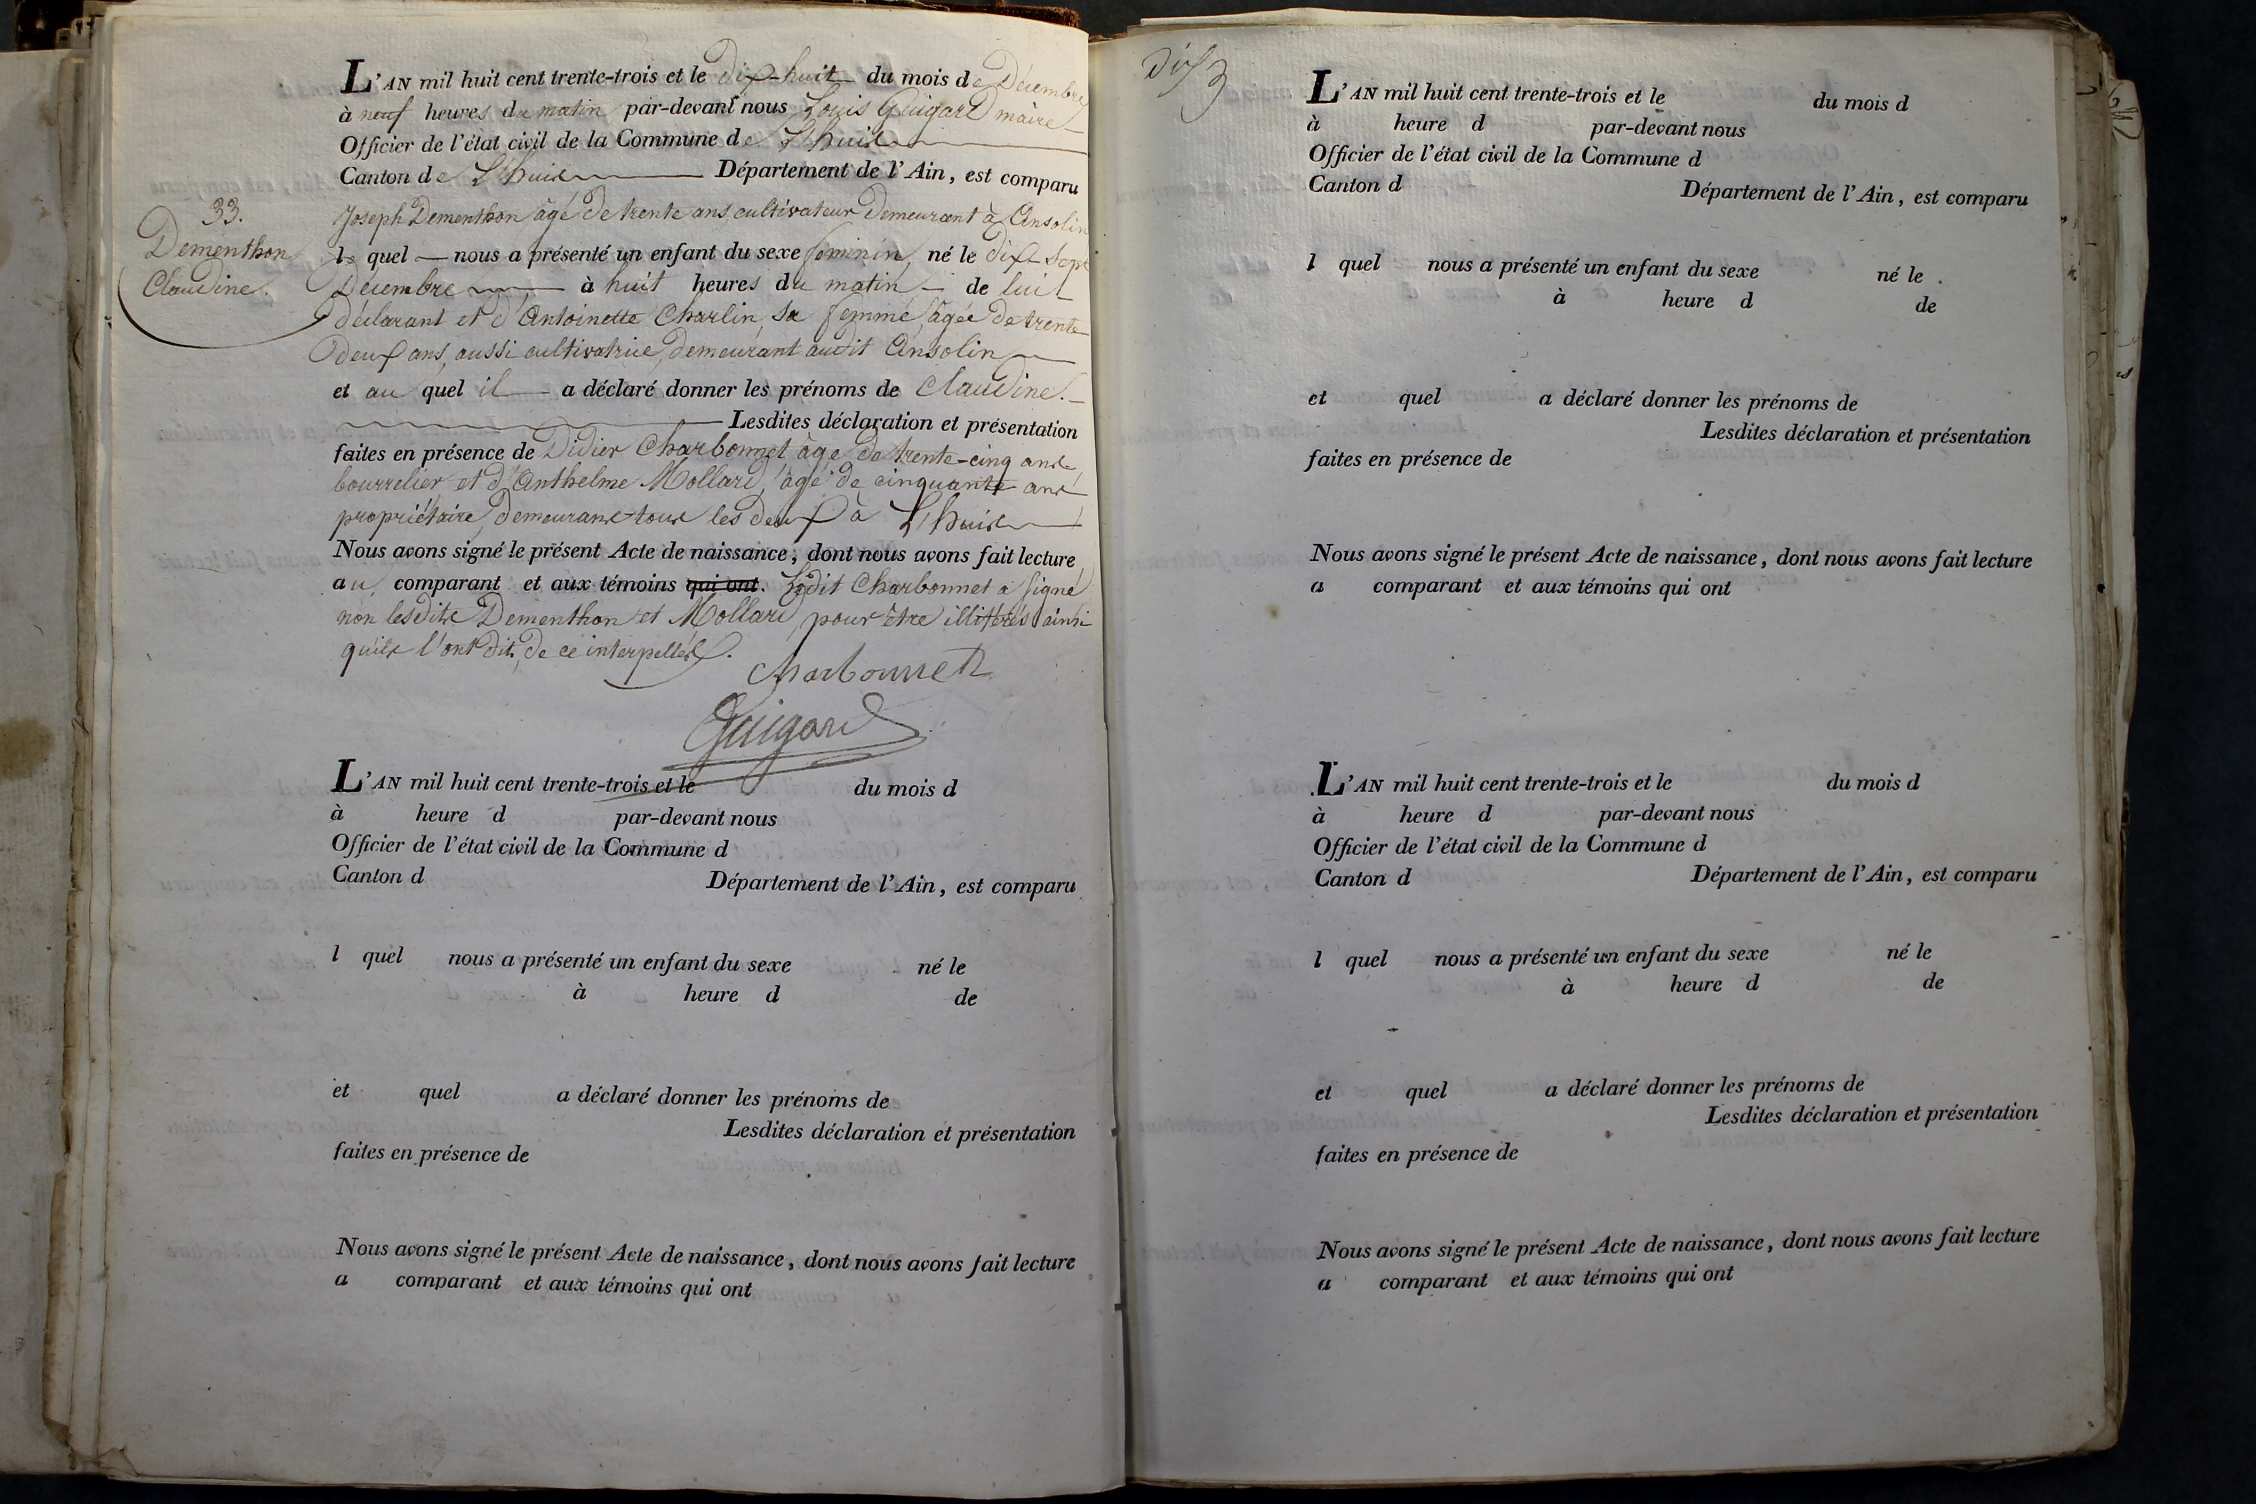 L'AN mil huit cent trente-trois et le dix-huit du mois de Décembre
à neuf heures du matin par-devant nous Louis Guigard maire
Officier de l'état civil de la Commune de L'huis
Canton de L'huis Département de l'Ain, est comparu
33.
Dementhon
Claudine.
Joseph Dementhon âgé de trente ans, cultivateur demeurant à Ansolin
le quel nous a présenté un enfant du sexe féminin, né le dix-sept
Décembre à huit heures du matin de lui
déclarant et d'Antoinette Charlin, sa femme, âgée de trente
deux ans, aussi cultivatrice, demeurant audit Ansolin
et au quel il a déclaré donner les prénoms de Claudine.
Lesdites déclaration et présentation
faites en présence de Didier Charbonnet âgé de trente-cinq ans,
bourrelier, et d'Anthelme Mollard, âgé de cinquante ans
propriétaire, demeurans tous les deux à L'huis
Nous avons signé le présent Acte de naissance, dont nous avons fait lecture
au comparant et aux témoins qui ont. Ledit Charbonnet a signé
non lesdits Dementhon et Mollard, pour être illitérés ainsi
qu'ils l'ont dit, de ce interpellés.
Charbonnet
Guigard
L'AN mil huit cent trente-trois et le du mois d
à heure d par-devant nous
Officier de l'état civil de la Commune d
Canton d Département de l'Ain, est comparu
l quel nous a présenté un enfant du sexe né le
à heure d de
et quel a déclaré donner les prénoms de
Lesdites déclaration et présentation
faites en présence de
Nous avons signé le présent Acte de naissance, dont nous avons fait lecture
a comparant et aux témoins qui ont
L'AN mil huit cent trente-trois et le du mois d
à heure d par-devant nous
Officier de l'état civil de la Commune d
Canton d Département de l'Ain, est comparu
l quel nous a présenté un enfant du sexe né le
à heure d de
et quel a déclaré donner les prénoms de
Lesdites déclaration et présentation
faites en présence de
Nous avons signé le présent Acte de naissance, dont nous avons fait lecture
a comparant et aux témoins qui ont
L'AN mil huit cent trente-trois et le du mois d
à heure d par-devant nous
Officier de l'état civil de la Commune d
Canton d Département de l'Ain, est comparu
l quel nous a présenté un enfant du sexe né le
à heure d de
et quel a déclaré donner les prénoms de
Lesdites déclaration et présentation
faites en présence de
Nous avons signé le présent Acte de naissance, dont nous avons fait lecture
a comparant et aux témoins qui ont